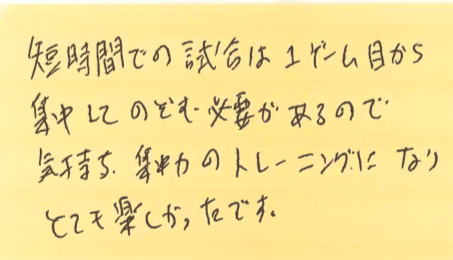 短時間での試合は1ゲーム目から
集中してのぞむ必要があるので
気持ち、集中力のトレーニングになり
とても楽しかったです。